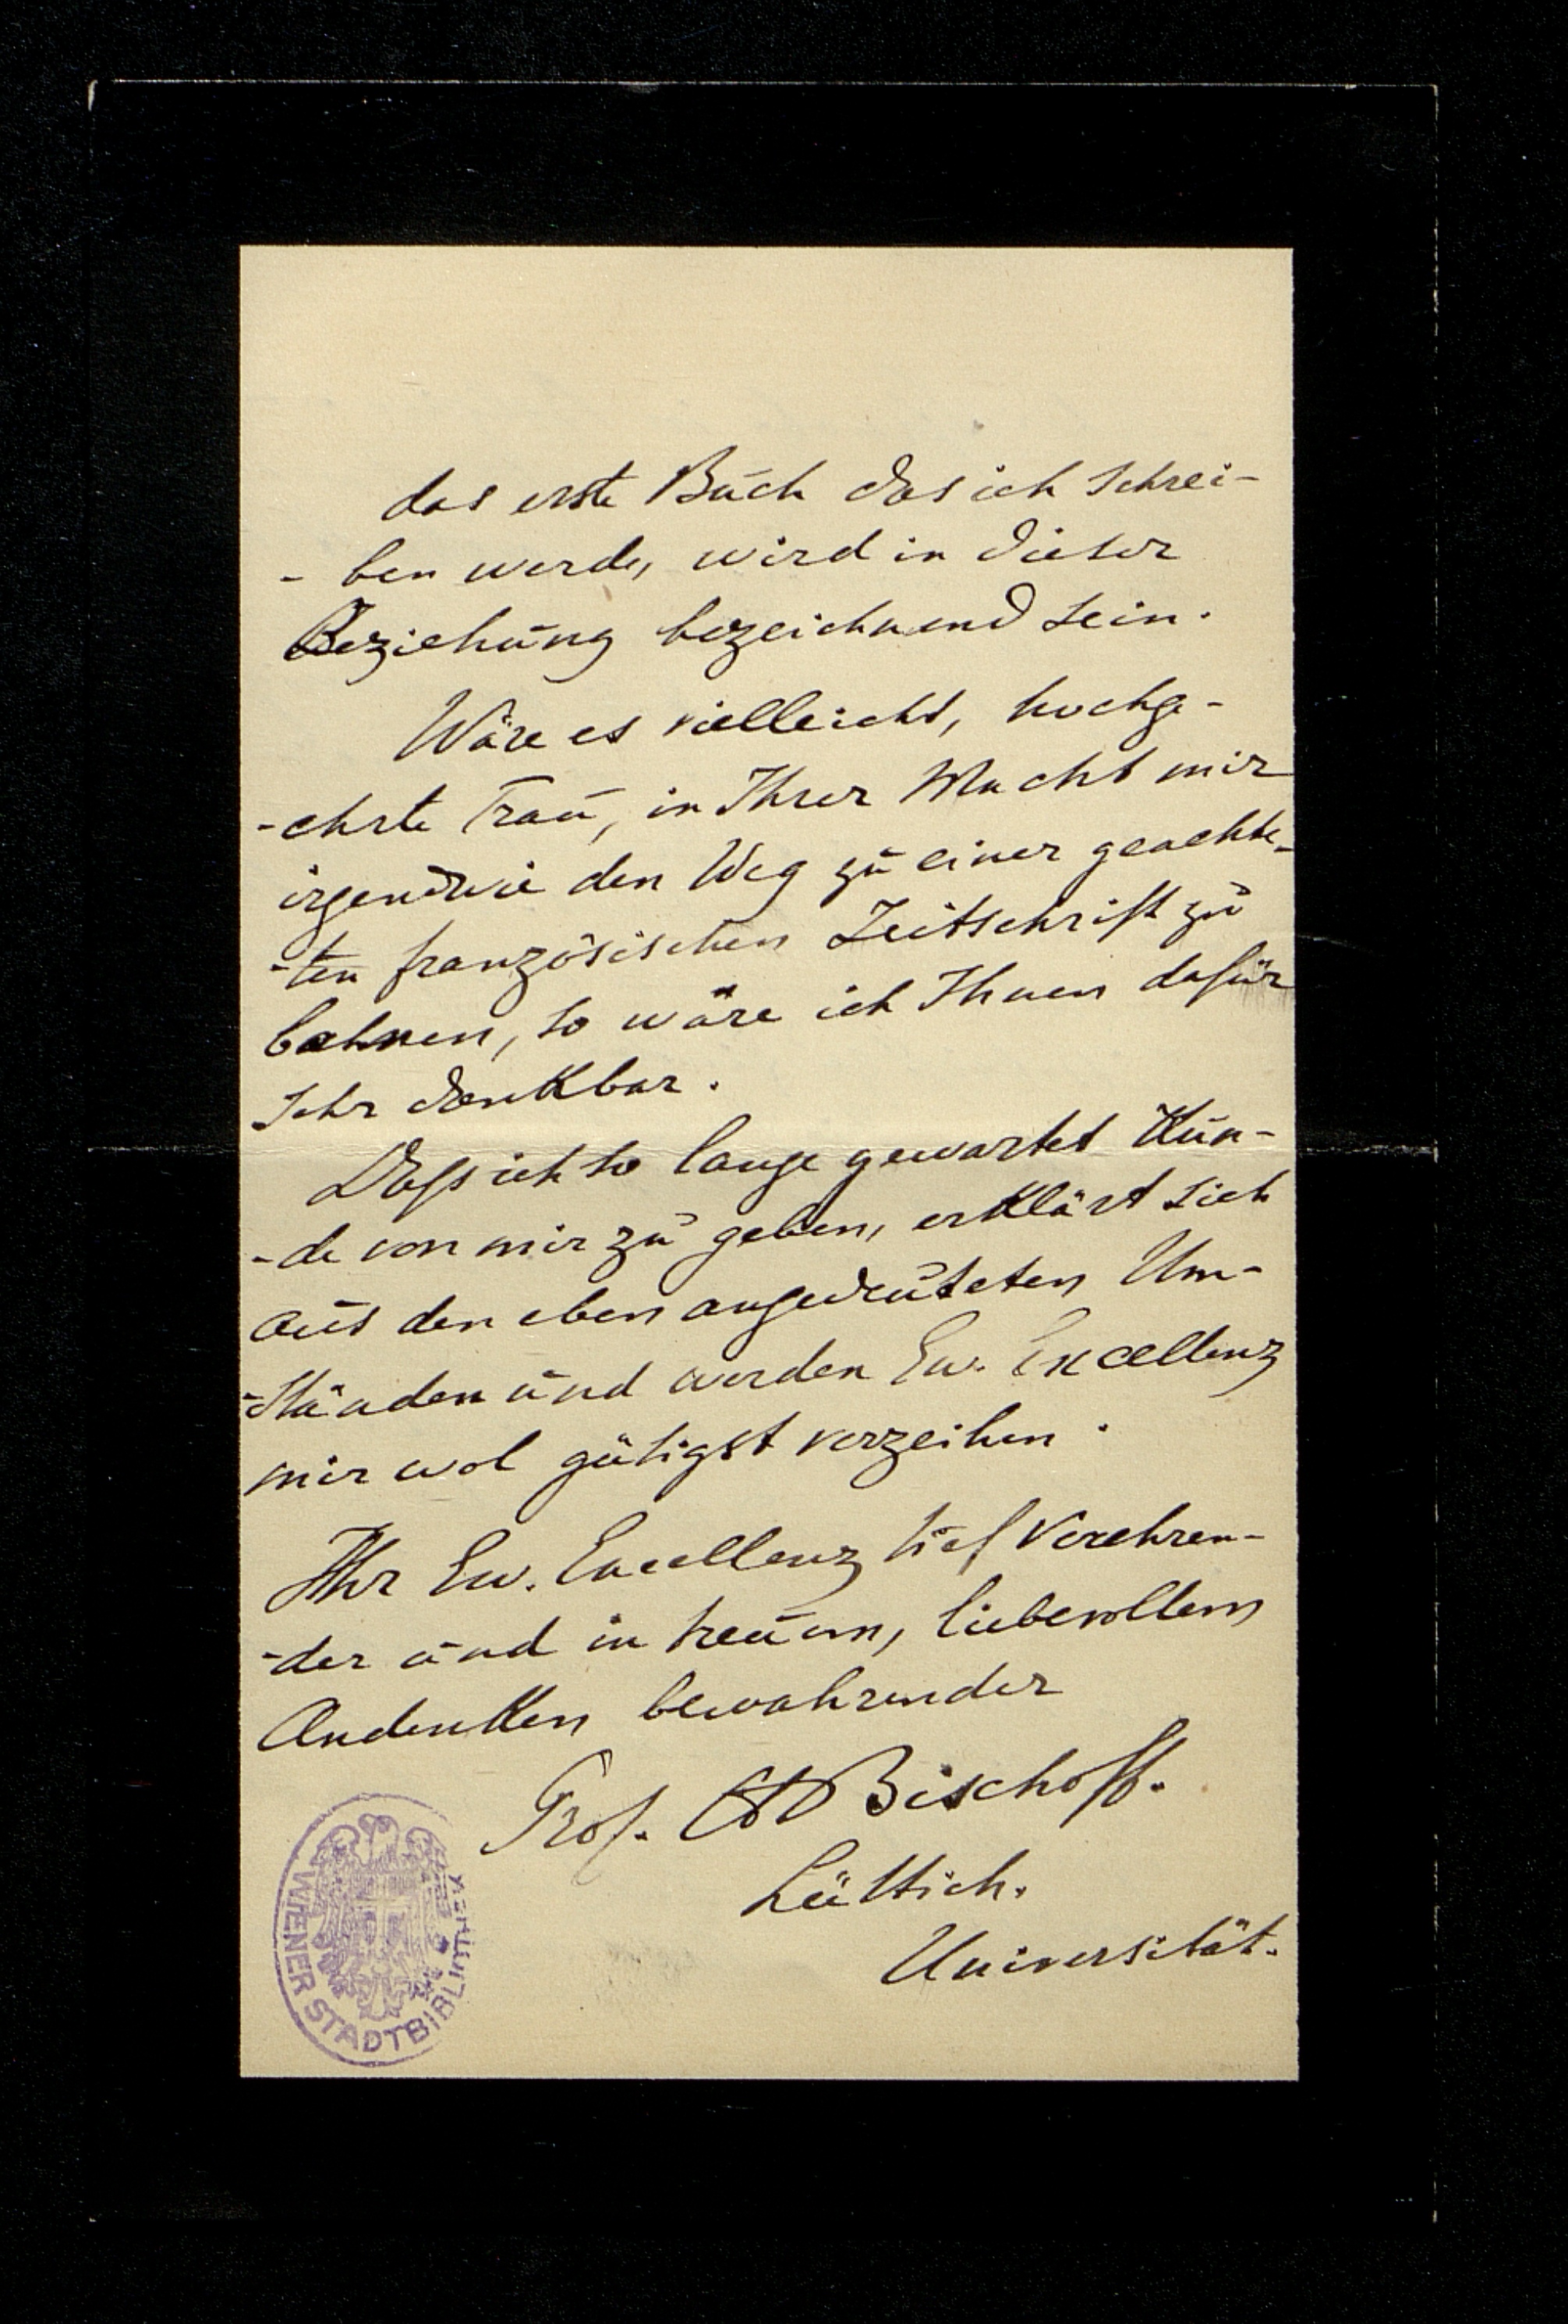 das erste Buch das ich schrei-
- ben werde, wird in dieser
Beziehung bezeichnend sein.
Wäre es vielleicht, hochge-
-ehrte Frau, in Ihrer Macht mir
irgendwie den Weg zu einer geachte-
-ten französischen Zeitschrift zu
bahnen, so wäre ich Ihnen dafür
sehr dankbar.
Dass ich so lange gewartet Kun-
-de von mir zu geben, erklärt sich
aus den eben angedeuteten Um-
-ständen und werden Ew. Excellenz
mir wol gütigst verzeihen.
Ihr Ew. Excellenz tief Verehren-
-der und in treuem, liebevollem
Andenken bewahrender
Prof. Bischoff.
Lüttich.
Universität.
WIENER STADTBIBLIOTHEK